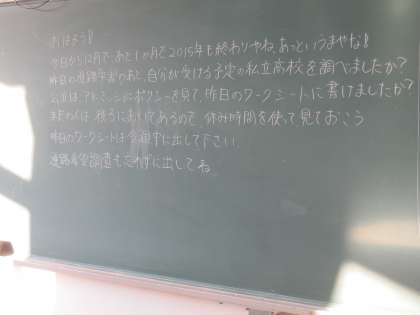 おはよう!
今日から12月で、あと1ヶ月で2015年も終わりやね。あっというまやな!
昨日の進路学習のあと、自分が受ける予定の私立高校を調べましたか?
公立は、アドミッションポリシーを見て、昨日のワークシートに書けましたか?
まだの人は、後ろにおいてあるので、休み時間を使って見ておこう
昨日のワークシートは今日中に出して下さい。
進路希望調査も忘れずに出してね。